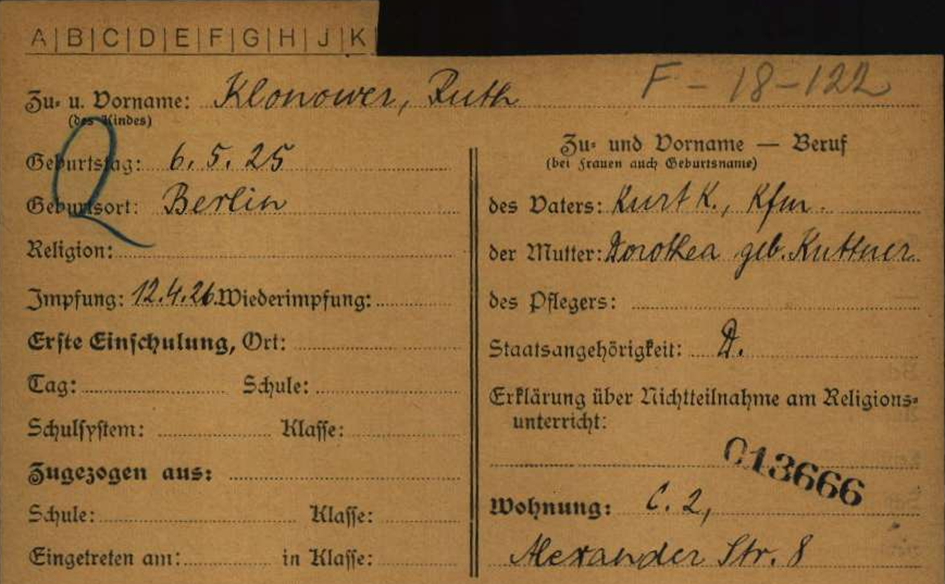 A|B|C|D|E|F|G|H|J|K
F - 18-122
Zu- u. Vorname: Klonower, Ruth
(des Kindes)
Geburtstag: 6. 5. 25
Geburtsort: Berlin
Religion:
Impfung: 12.4.26. Wiederimpfung:
Erste Einschulung, Ort:
Tag: Schule:
Schulsystem: Klasse:
Zugezogen aus:
Schule: Klasse:
Eingetreten am: in Klasse:
Zu- und Vorname — Beruf
(bei Frauen auch Geburtsname)
des Vaters: Kurt K., Kfm.
der Mutter: Dorothea geb. Kuttner
des Pflegers:
Staatsangehörigkeit: D.
Erklärung über Nichtteilnahme am Religions-
unterricht:
013666
Wohnung: C. 2,
Alexander Str. 8